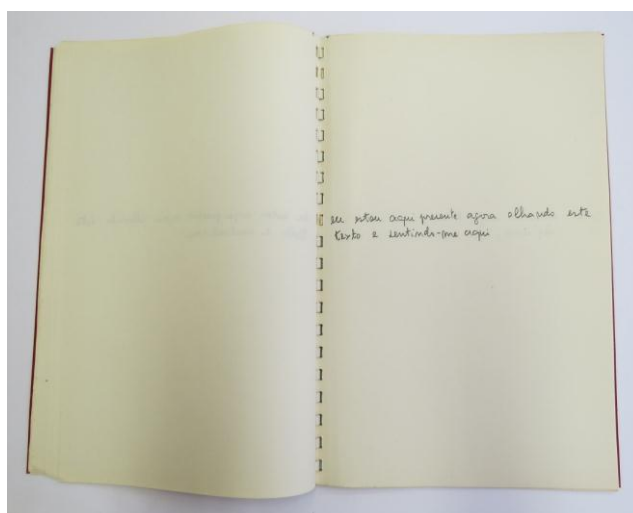 eu estou aqui presente agora olhando este
texto e sentindo-me aqui